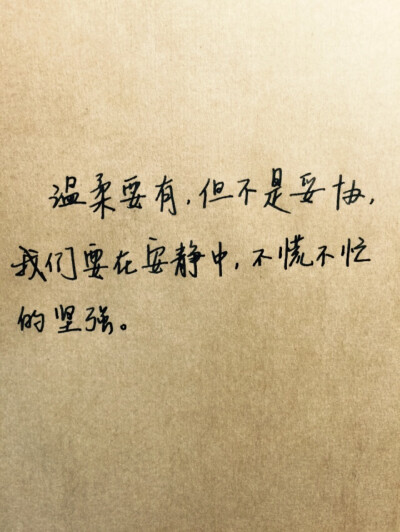 温柔要有,但不是妥协,
我们要在安静中,不慌不忙
的坚强。